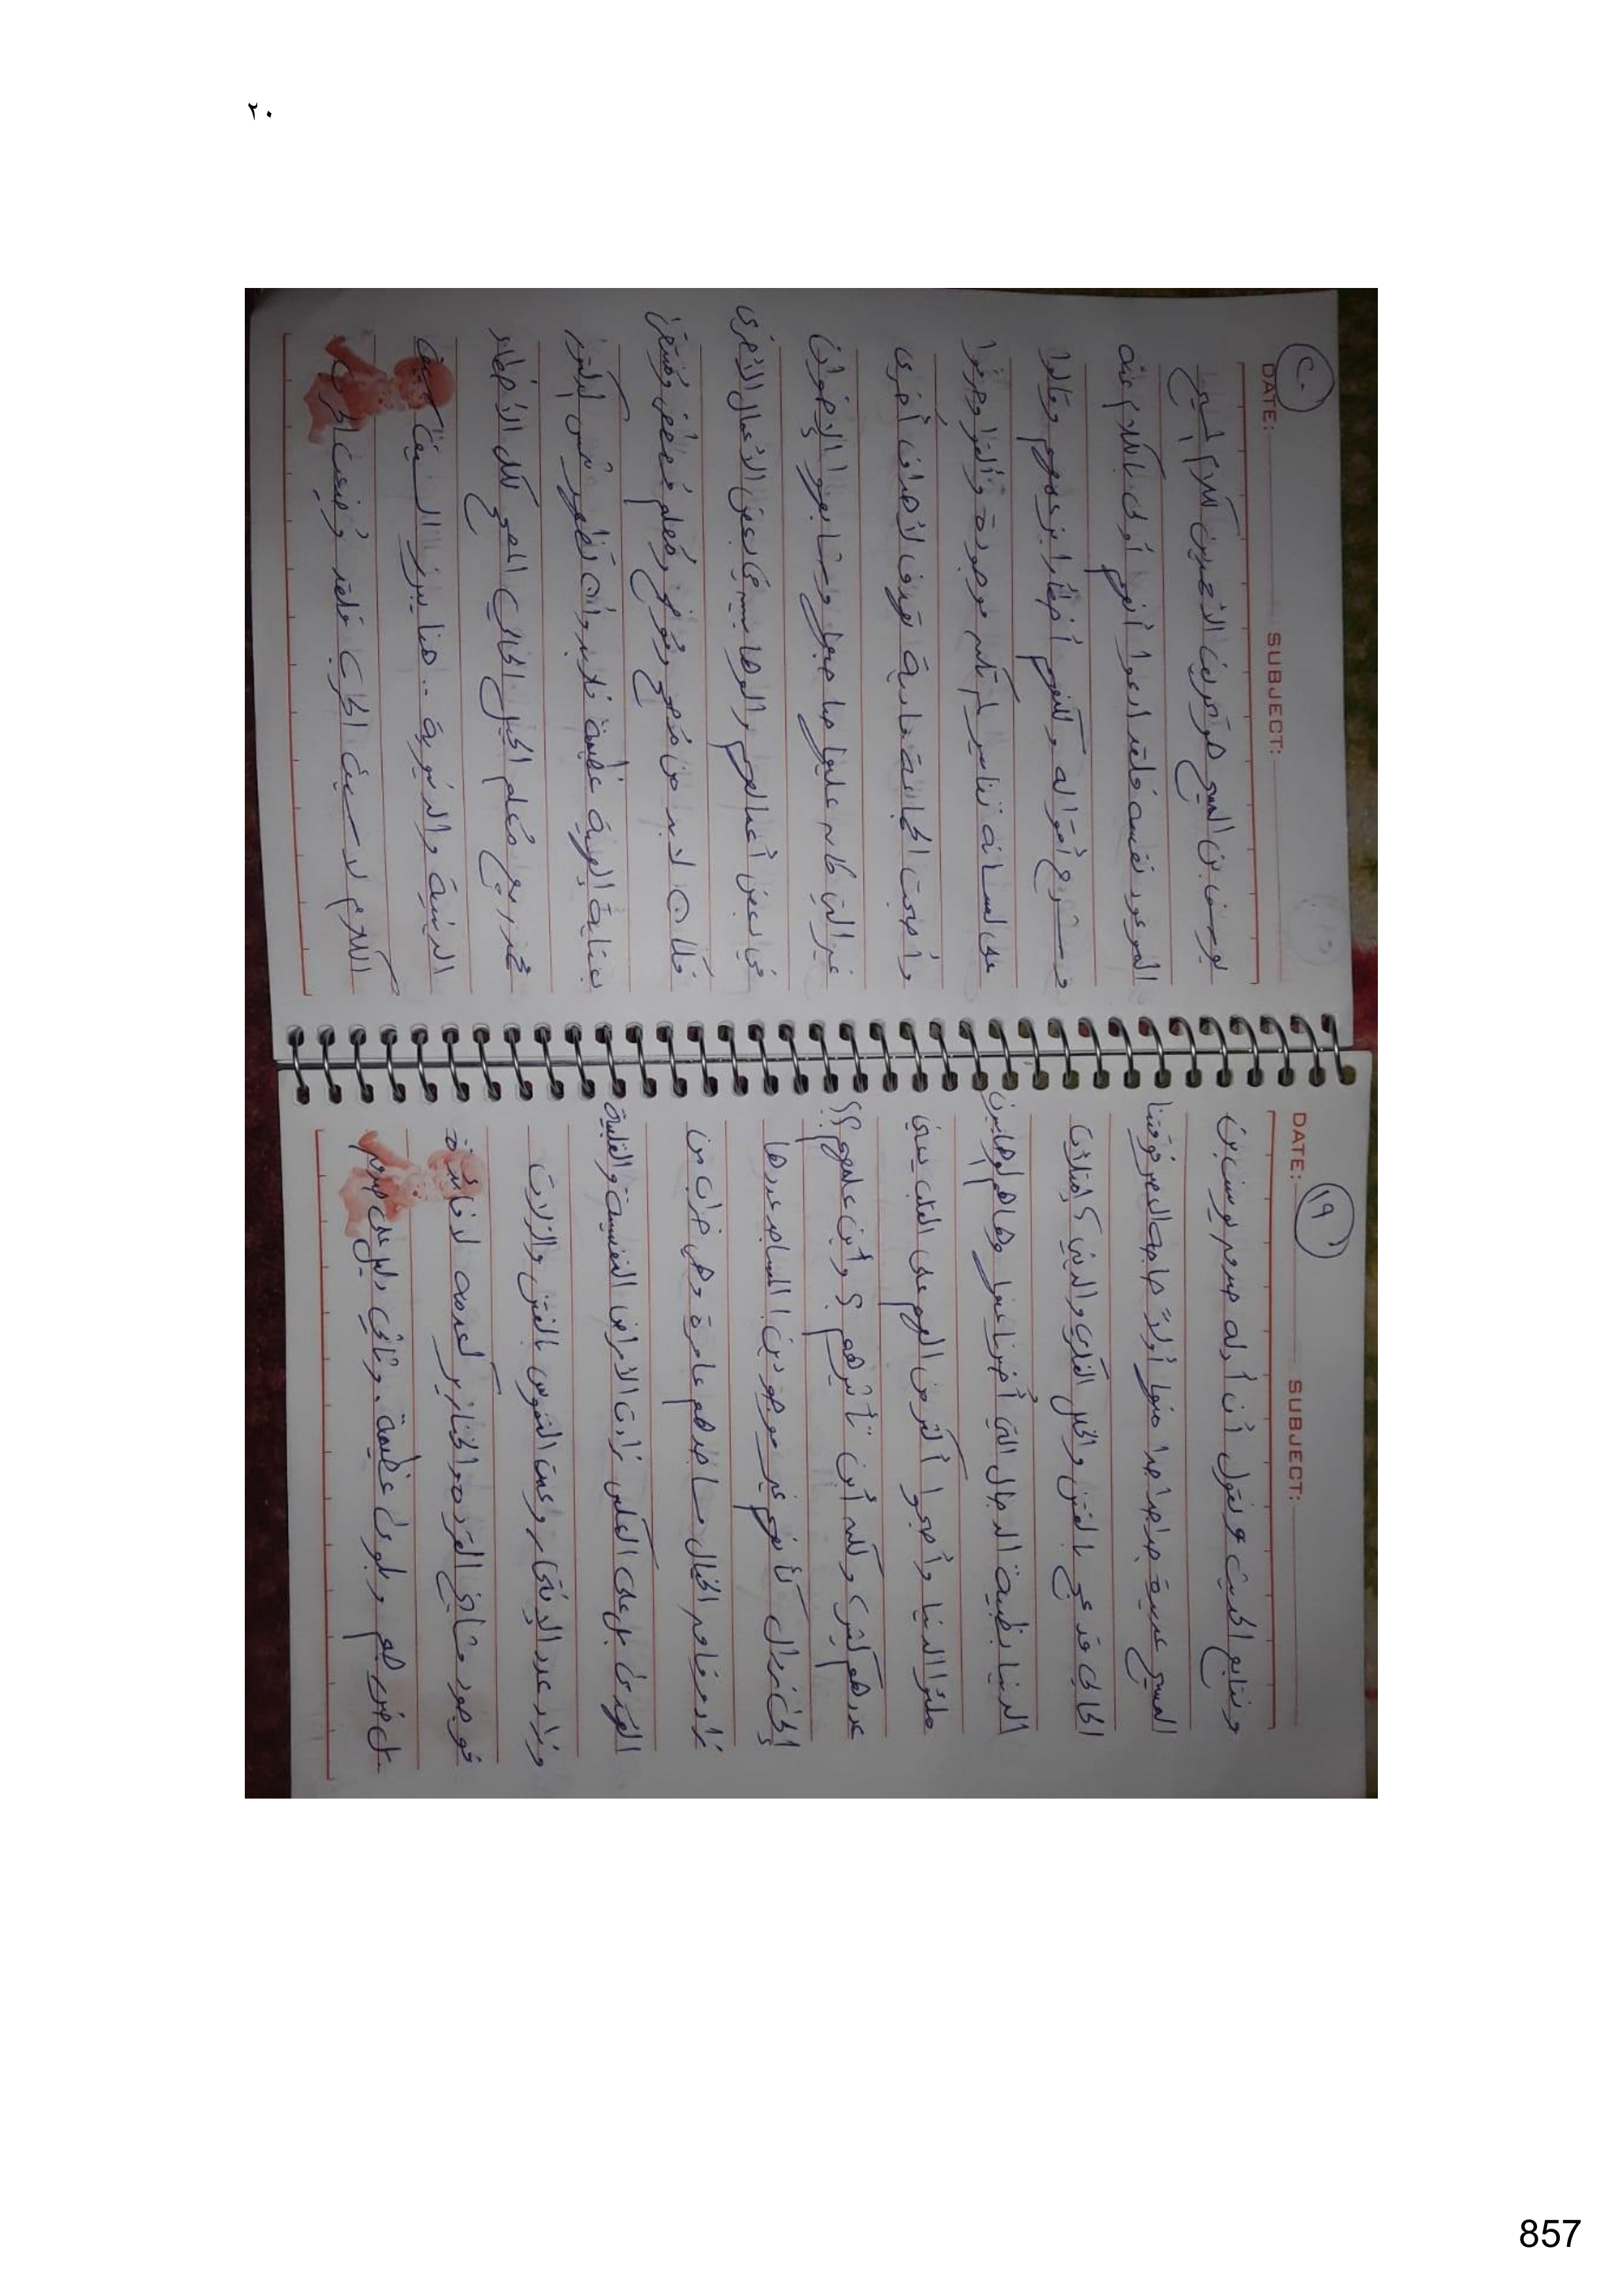 ٢٠
١٩
DATE: SUBJECT:
ونتابع الحديث ونقول أن أدلة صدم يوسف بن
المسيح عديدة جداً جداً منها أولاً حاجة العصر فوقتنا
الحالي قد عج بالفتن والخبل الفكري والديني؟ امتلئت
الدنيا بظلمة الدجال التي أخبرنا عنها وها هم الوهابيين
ملئوا الدنيا وأصبحوا أكثر من الهم على القلب يعني
عددهم كبير ولكن أين تأثيرهم؟ وأين علمهم؟؟
إلى زوال كأنهم غير موجودين! المساجد عددها
زاد ومع الحال مساجدهم عامرة وهي خراب من
الهدى بل على العكس زادت الأمراض النفسية والقلبية
وزاد عدد الإنتحار وعمت النفوس بالفتن والزلات
فوجود مشايخ القردة والخنازير كعدمه لا فائدة
بل ضرر لهم وبلوى عظيمة. وثاني دليل على صدم
٢٠
DATE: SUBJECT:
يوسف بن المسيح هو تصريف الأخرين كلام المسيح
الموعود نفسه فلقد ادعوا أنهم أولى بالكلام عنه
وشرح أقواله ولكنهم أخطأوا بزعمهم وقالوا
على لسانه تفاسير لم تكن موجودة وألفوا وحرفوا
وأصبحت الجماعة مادية تهدف لأهداف أخرى
غير التي كان عليها صاحبها وتابعوا الإخوان
في بعض أعمالهم والوهابيين في بعض الأعمال الأخرى
فكان لابد من مُصحح ومُوضح ومُعلم مُفهم ومُتقن
بعناية إلهية عظيمة فلابد وأن تظهر شمس البدر
محمد ربيع مُعلم الجيل الحالي الماحي لكل الأخطاء
الدينية والدنيوية .. هنا يبرز السيف حيث
الكلام لا حيث الحرب فلقد وُضعت الحرب
857